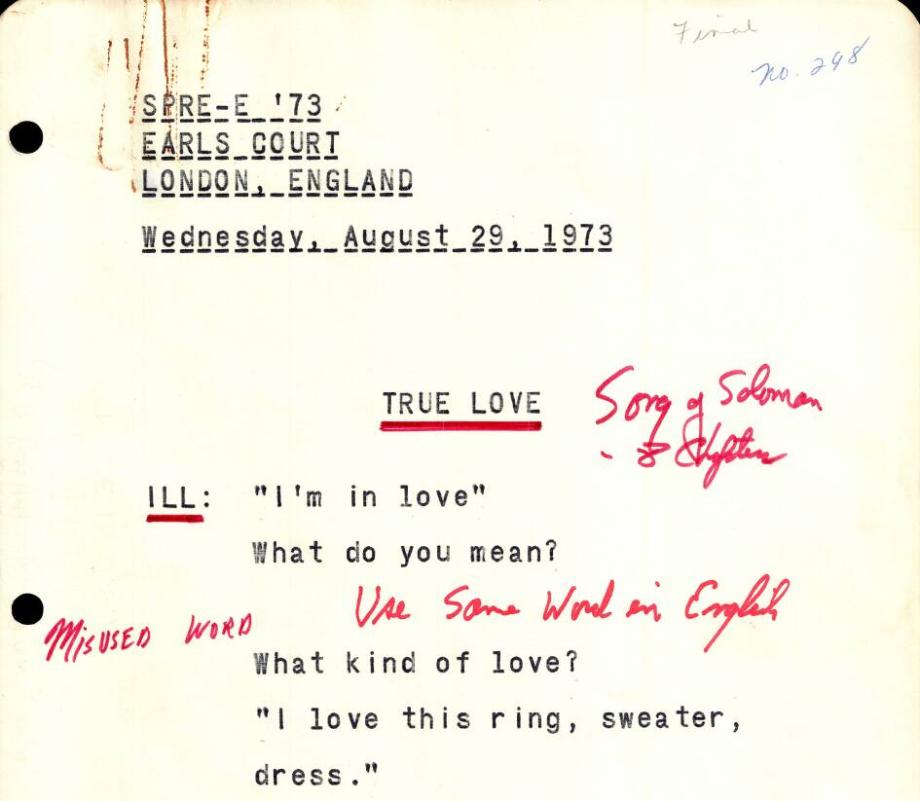 Final
no. 298
SPRE-E '73
EARLS COURT
LONDON, ENGLAND
Wednesday, August 29, 1973
TRUE LOVE
Song of Soloman
- 8 Chapters
ILL: "I'm in love"
What do you mean?
Use Same Word in English
MISUSED WORD
What kind of love?
"I love this ring, sweater,
dress."